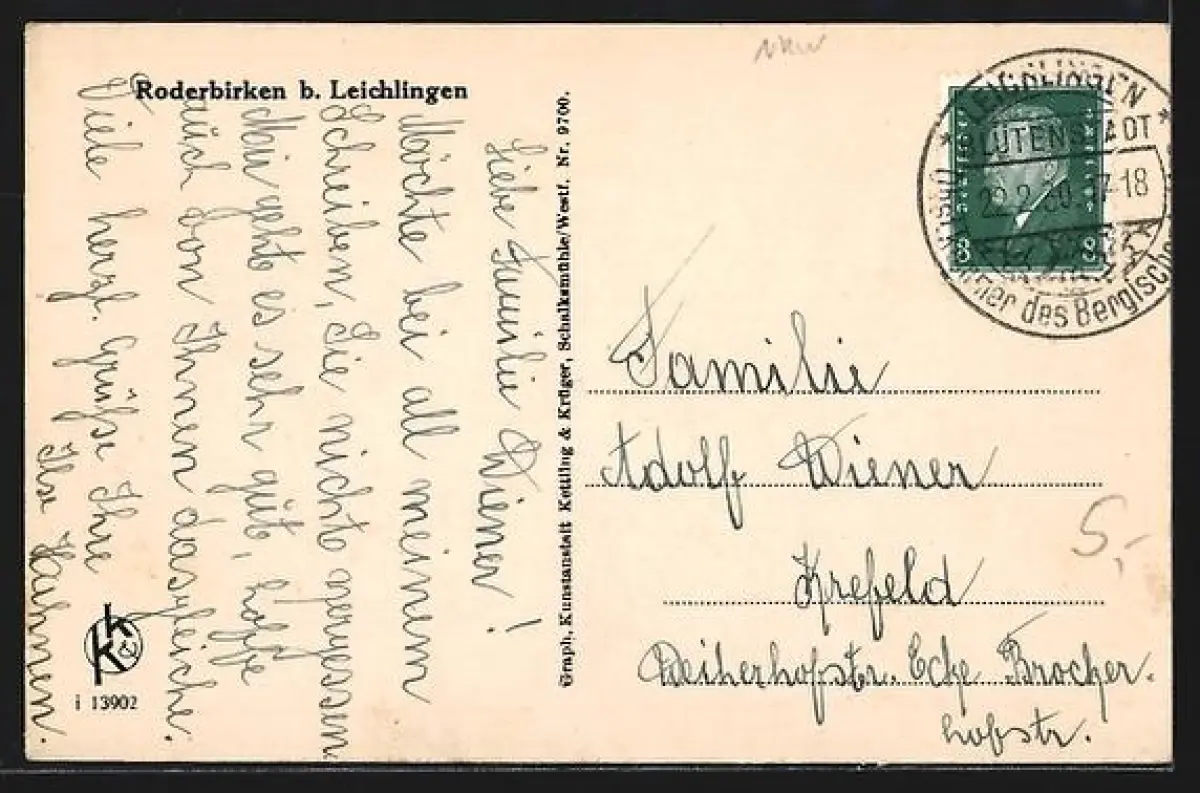 Roderbirken b. Leichlingen
Liebe Familie Wiener!
Möchte bei all meinem
Schreiben, Sie nicht vergessen
Mir geht es sehr gut, hoffe
auch von Ihnen dasgleiche.
Viele herzl. Grüße Ihre
Ilse Hahnen.
K & K
i 13902
Graph. Kunstanstalt Kettling & Krüger, Schalksmühle/Westf. Nr. 9700.
NRW
LEICHLINGEN
BLÜTENSTADT
22.2.30. 17-18
des Bergische
8 8
Familie
Adolf Wiener
Krefeld
Weiherhofstr. Ecke Brocker.
hofstr.
5,-